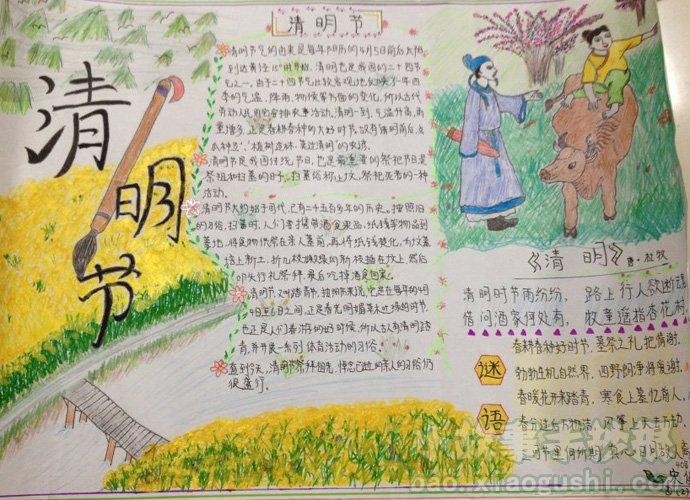 清明节
清明节
清明节气的由来是每年阳历的4月5日前后太阳
到达黄经15°时开始。清明也是我国的二十四节
气之一。由于二十四节气比较客观地反映了一年四
季的气温、降雨、物候等方面的变化,所以古代
劳动人民用它安排农事活动。清明一到,气温升高,雨
量增多,正是春耕春种的大好时节。故有清明前后,点
瓜种豆、植树造林,莫过清明的农谚。
清明节是我国传统节日,也是最重要的祭祀节日是
祭祖和扫墓的日子。扫墓俗称上坟,祭祀死者的一种
活动。
清明节大约始于周代,已有二千五百多年的历史。按照旧
的习俗,扫墓时,人们要携带酒食果品、纸钱等物品到
墓地,将食物供祭在亲人墓前,再将纸钱焚化,为坟墓
培上新土,折几枝嫩绿的新枝插在坟上,然后
叩头行礼祭拜,最后吃掉酒食回家。
清明节,又叫踏青节,按阳历来说,它是在每年的4月
4日至6日之间,正是春光明媚草木吐绿的时节,
也正是人们春游的好时候,所以古人有清明踏
青,并开展一系列体育活动的习俗。
直到今天,清明节祭拜祖先,悼念已逝的亲人的习俗仍
很盛行。
《清明》 唐·杜牧
清明时节雨纷纷, 路上行人欲断魂
借问酒家何处有, 牧童遥指杏花村
谜语
春耕春种好时节,墓祭之礼把情谢。
勃勃生机自然界,四野
春暖花开来踏青,寒食上墓忆前人。